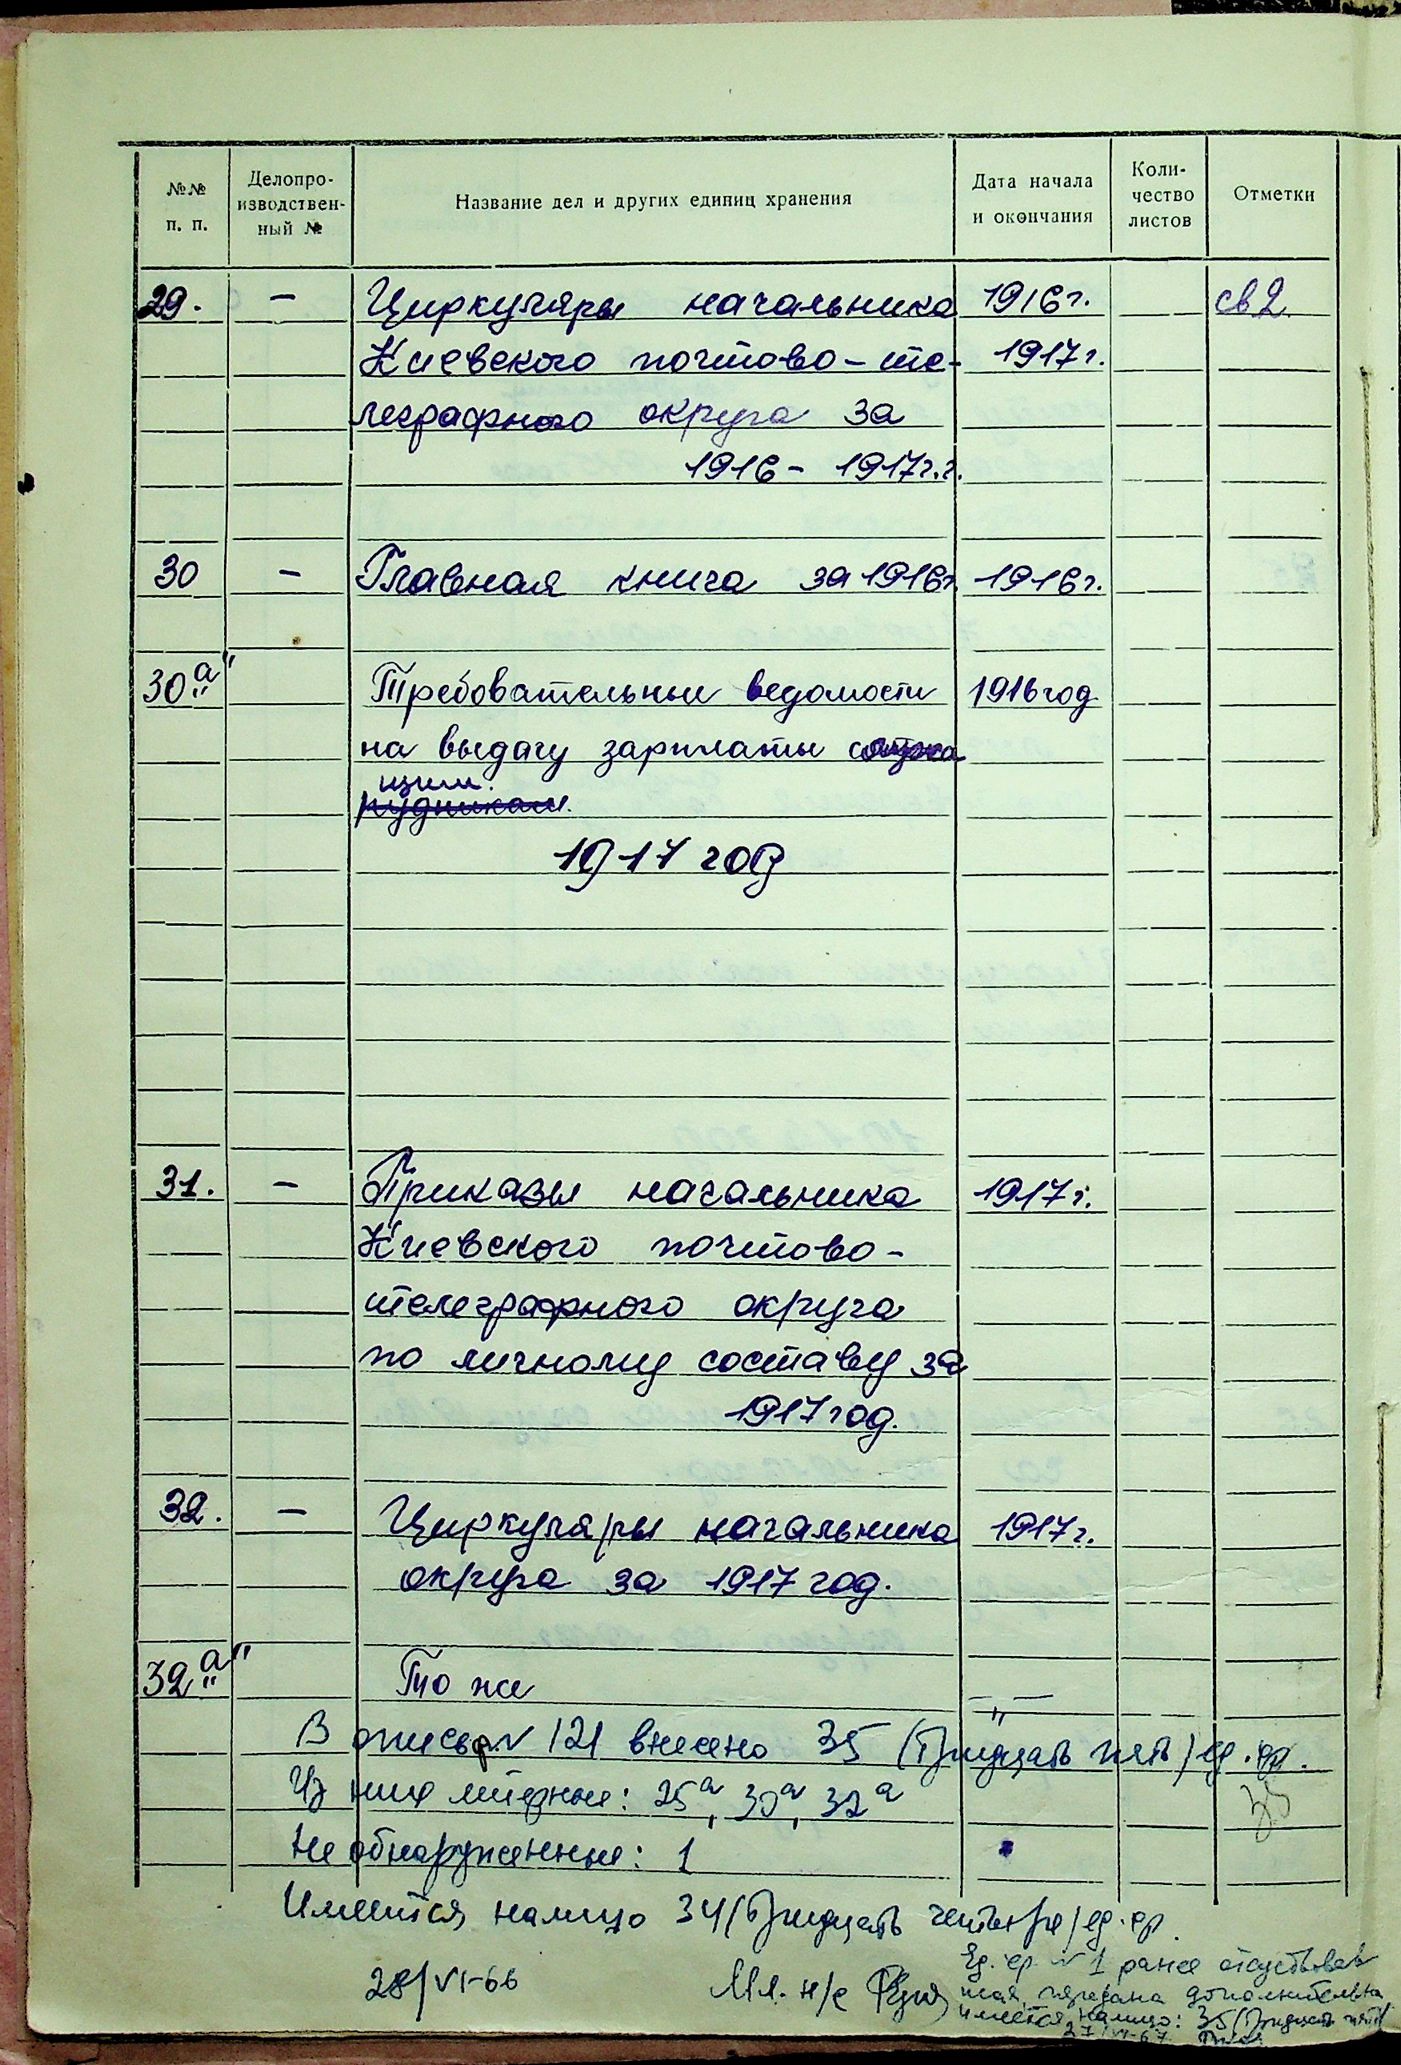 №№ п. п.
Делопро-
изводствен-
ный №
Название дел и других единиц хранения
Дата начала
и окончания
Коли-
чество
листов
Отметки
29. — Циркуляры начальника 1916 г. св 2.
Киевского почтово-те- 1917 г.
леграфного округа за
1916 - 1917 г.г.
30 — Главная книга за 1916 г. 1916 г.
30 "а" Требовательные ведомости 1916 год
на выдачу зарплаты служа
щим.
рудникам.
1917 год
31. — Приказы начальника 1917 г.
Киевского почтово-
телеграфного округа
по личному составу за
1917 год.
32. — Циркуляры начальника 1917 г.
округа за 1917 год.
32 "а" То же — " —
В опись № 121 внесено 35 (Тридцать пять) ед. хр.
Из них литерные: 25а, 30а, 32а
35
Не обнаруженные: 1
Имеется налицо 34 (Тридцать четыре) ед. хр.
28/VI-66 Мл. н/с
Ед. хр. № 1 ранее отсутствовав
шая, передана дополнительно.
имеется налицо: 35 (Тридцать пять)
27/VI-67